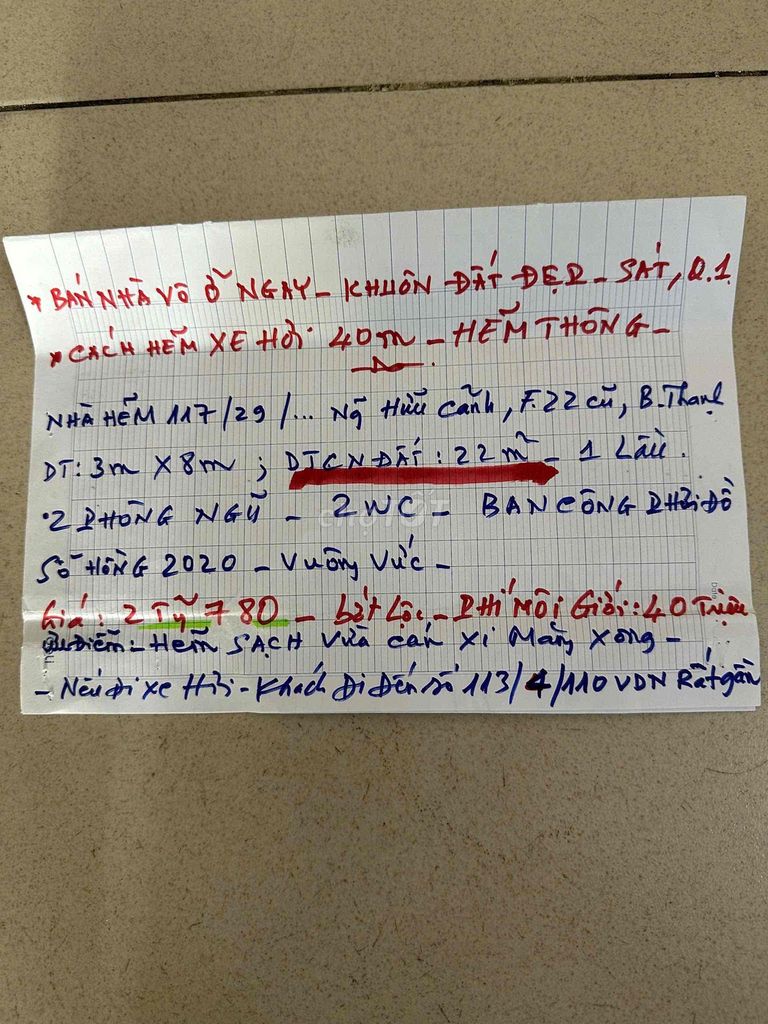 * BÁN NHÀ VÔ Ở NGAY - KHUÔN ĐẤT ĐẸP - SÁT, Q.1
* CÁCH HẺM XE HƠI 40m - HẺM THÔNG -
NHÀ HẺM 117/29/... Ng Hữu Cảnh, F.22 cũ, B.Thạnh
DT: 3m X 8m ; DTCN ĐẤT : 22m² - 1 Lầu.
•2 PHÒNG NGŨ - 2WC - BAN CÔNG PHƠI ĐỒ
SỔ HỒNG 2020 - Vuông Vức -
Giá : 2 Tỷ 780 - bớt Lộc - PHÍ MÔI Giới : 40 Triệu
ưu Điểm - Hẻm SẠCH Vừa cán xi Măng Xong -
- Nếu Đi xe Hơi - Khách Đi Đến số 113/4/110 VDN Rất gần
CHỢ TỐT